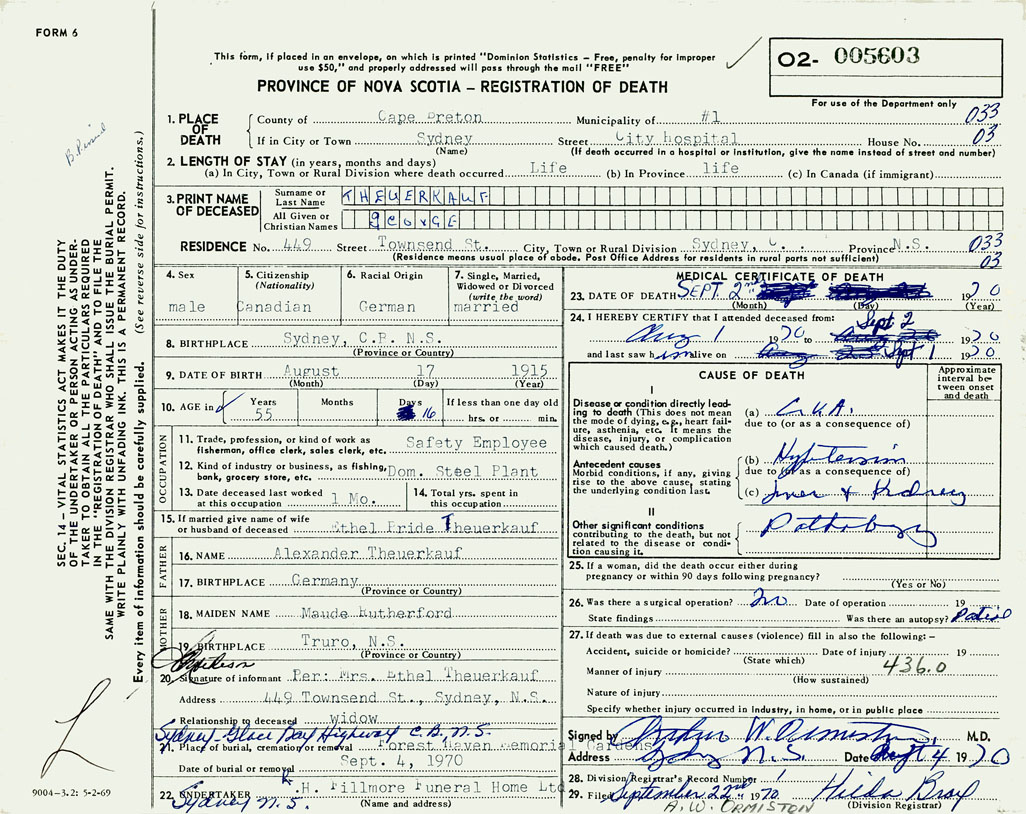 FORM 6
This form, if placed in an envelope, on which is printed "Dominion Statistics – Free, penalty for improper
use $50," and properly addressed will pass through the mail "FREE"
PROVINCE OF NOVA SCOTIA – REGISTRATION OF DEATH
O2- 005603
For use of the Department only
1. PLACE OF DEATH
County of Cape Breton Municipality of #1 033
If in City or Town Sydney Street City hospital House No. 03
(Name) (If death occurred in a hospital or institution, give the name instead of street and number)
2. LENGTH OF STAY (in years, months and days)
(a) In City, Town or Rural Division where death occurred Life (b) In Province life (c) In Canada (if immigrant)
3. PRINT NAME OF DECEASED
Surname or Last Name THEUERKAUF
All Given or Christian Names GEORGE
RESIDENCE No. 449 Street Townsend St. City, Town or Rural Division Sydney, Province N.S. 033
(Residence means usual place of abode. Post Office Address for residents in rural parts not sufficient) 03
4. Sex
male
5. Citizenship
(Nationality)
Canadian
6. Racial Origin
German
7. Single, Married,
Widowed or Divorced
(write the word)
married
8. BIRTHPLACE Sydney, C.B. N.S.
(Province or Country)
9. DATE OF BIRTH August 17 1915
(Month) (Day) (Year)
10. AGE in Years Months Days If less than one day old
55 16 hrs. or min.
OCCUPATION
11. Trade, profession, or kind of work as
fisherman, office clerk, sales clerk, etc. Safety Employee
12. Kind of industry or business, as fishing,
bank, grocery store, etc. Dom. Steel Plant
13. Date deceased last worked
at this occupation 1 Mo.
14. Total yrs. spent in
this occupation
15. If married give name of wife
or husband of deceased Ethel Pride Theuerkauf
FATHER
16. NAME Alexander Theuerkauf
17. BIRTHPLACE Germany
(Province or Country)
MOTHER
18. MAIDEN NAME Maude Rutherford
19. BIRTHPLACE Truro, N.S.
(Province or Country)
20. Signature of informant Per: Mrs. Ethel Theuerkauf
Address 449 Townsend St., Sydney, N.S.
Relationship to deceased widow
Sydney-Glace Bay Highway C.B. N.S.
21. Place of burial, cremation or removal Forest Haven Memorial Gardens
Date of burial or removal Sept. 4, 1970
22. UNDERTAKER .H. Fillmore Funeral Home Ltd
Sydney N.S. (Name and address)
MEDICAL CERTIFICATE OF DEATH
23. DATE OF DEATH SEPT 2nd 1970
(Month) (Day) (Year)
24. I HEREBY CERTIFY that I attended deceased from:
Sept 2
Aug 1 1970 to 1970
and last saw him alive on Sept 1 1970
CAUSE OF DEATH
Approximate
interval be-
tween onset
and death
I
Disease or condition directly lead-
ing to death (This does not mean
the mode of dying, e.g., heart fail-
ure, asthenia, etc. It means the
disease, injury, or complication
which caused death.)
(a) C.V.A.
due to (or as a consequence of)
Antecedent causes
Morbid conditions, if any, giving
rise to the above cause, stating
the underlying condition last.
(b) Hypertension
due to (or as a consequence of)
(c) Liver & Kidney
II
Other significant conditions
contributing to the death, but not
related to the disease or condi-
tion causing it.
Pathology
25. If a woman, did the death occur either during
pregnancy or within 90 days following pregnancy?
(Yes or No)
26. Was there a surgical operation? No Date of operation 19
State findings Was there an autopsy?
27. If death was due to external causes (violence) fill in also the following: –
Accident, suicide or homicide? Date of injury 19
(State which)
Manner of injury 436.0
(How sustained)
Nature of injury
Specify whether injury occurred in industry, in home, or in public place
Signed by Arthur W. Ormiston, M.D.
Address Sydney N.S. Date Sept 4 1970
28. Division Registrar's Record Number 1
29. Filed September 22nd 1970 Hilda Bray
A.W. ORMISTON (Division Registrar)
SEC. 14 – VITAL STATISTICS ACT MAKES IT THE DUTY
OF THE UNDERTAKER OR PERSON ACTING AS UNDER-
TAKER TO OBTAIN ALL THE PARTICULARS REQUIRED
IN THE "REGISTRATION OF DEATH" AND TO FILE THE
SAME WITH THE DIVISION REGISTRAR WHO SHALL ISSUE THE BURIAL PERMIT.
WRITE PLAINLY WITH UNFADING INK. THIS IS A PERMANENT RECORD.
Every item of information should be carefully supplied. (See reverse side for instructions.)
9004-3.2: 5-2-69